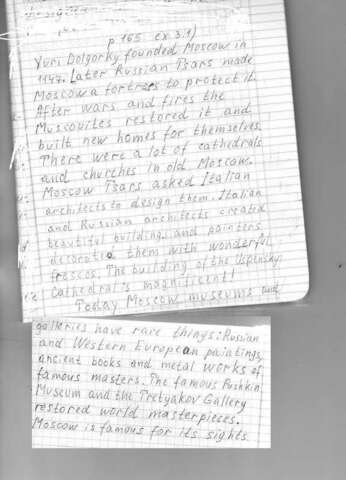 p 165 ex 31)
Yuri Dolgorky founded Moscow in
1147. Later Russian Tsars made
Moscow a fortress to protect it.
After wars and fires the
Muscovites restored it and
built new homes for themselves.
There were a lot of cathedrals
and churches in old Moscow.
Moscow Tsars asked Italian
architects to design them. Italian
and Russian architects created
beautiful buildings and painters
decorated them with wonderful
frescos. The building of the Uspensky
Cathedral is magnificent!
Today Moscow museums and
galleries have rare things: Russian
and Western European paintings,
ancient books and metal works of
famous masters. The famous Pushkin
Museum and the Tretyakov Gallery
restored world masterpieces.
Moscow is famous for its sights